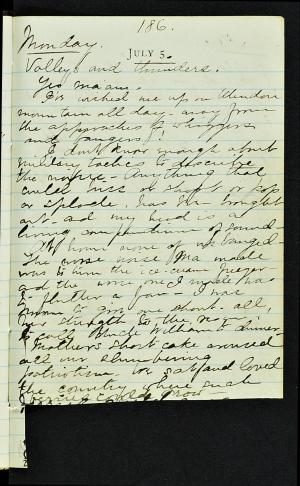 186.
Monday.
JULY 5.
Volleys and thunders.
Yes ma'am.
I've wished me up on Mendon
mountain all day - away from
the approaches of whizzers
and bangers!
I don't know enough about
military tactics to describe
the noise. Anything that
could hiss or shoot or pop
or splode, has been brought
out - and my head is a
living of sound.
At home none of us banged.
The worse noise Ma made
was to turn the ice-cream freezer
and the worse one I made was
to flutter a fan - I was
our strength to the
to Uncle William's dinner.
Mother's short cake aroused
all our slumbering
patriotism. We sat and loved
the country where such
berries could grow